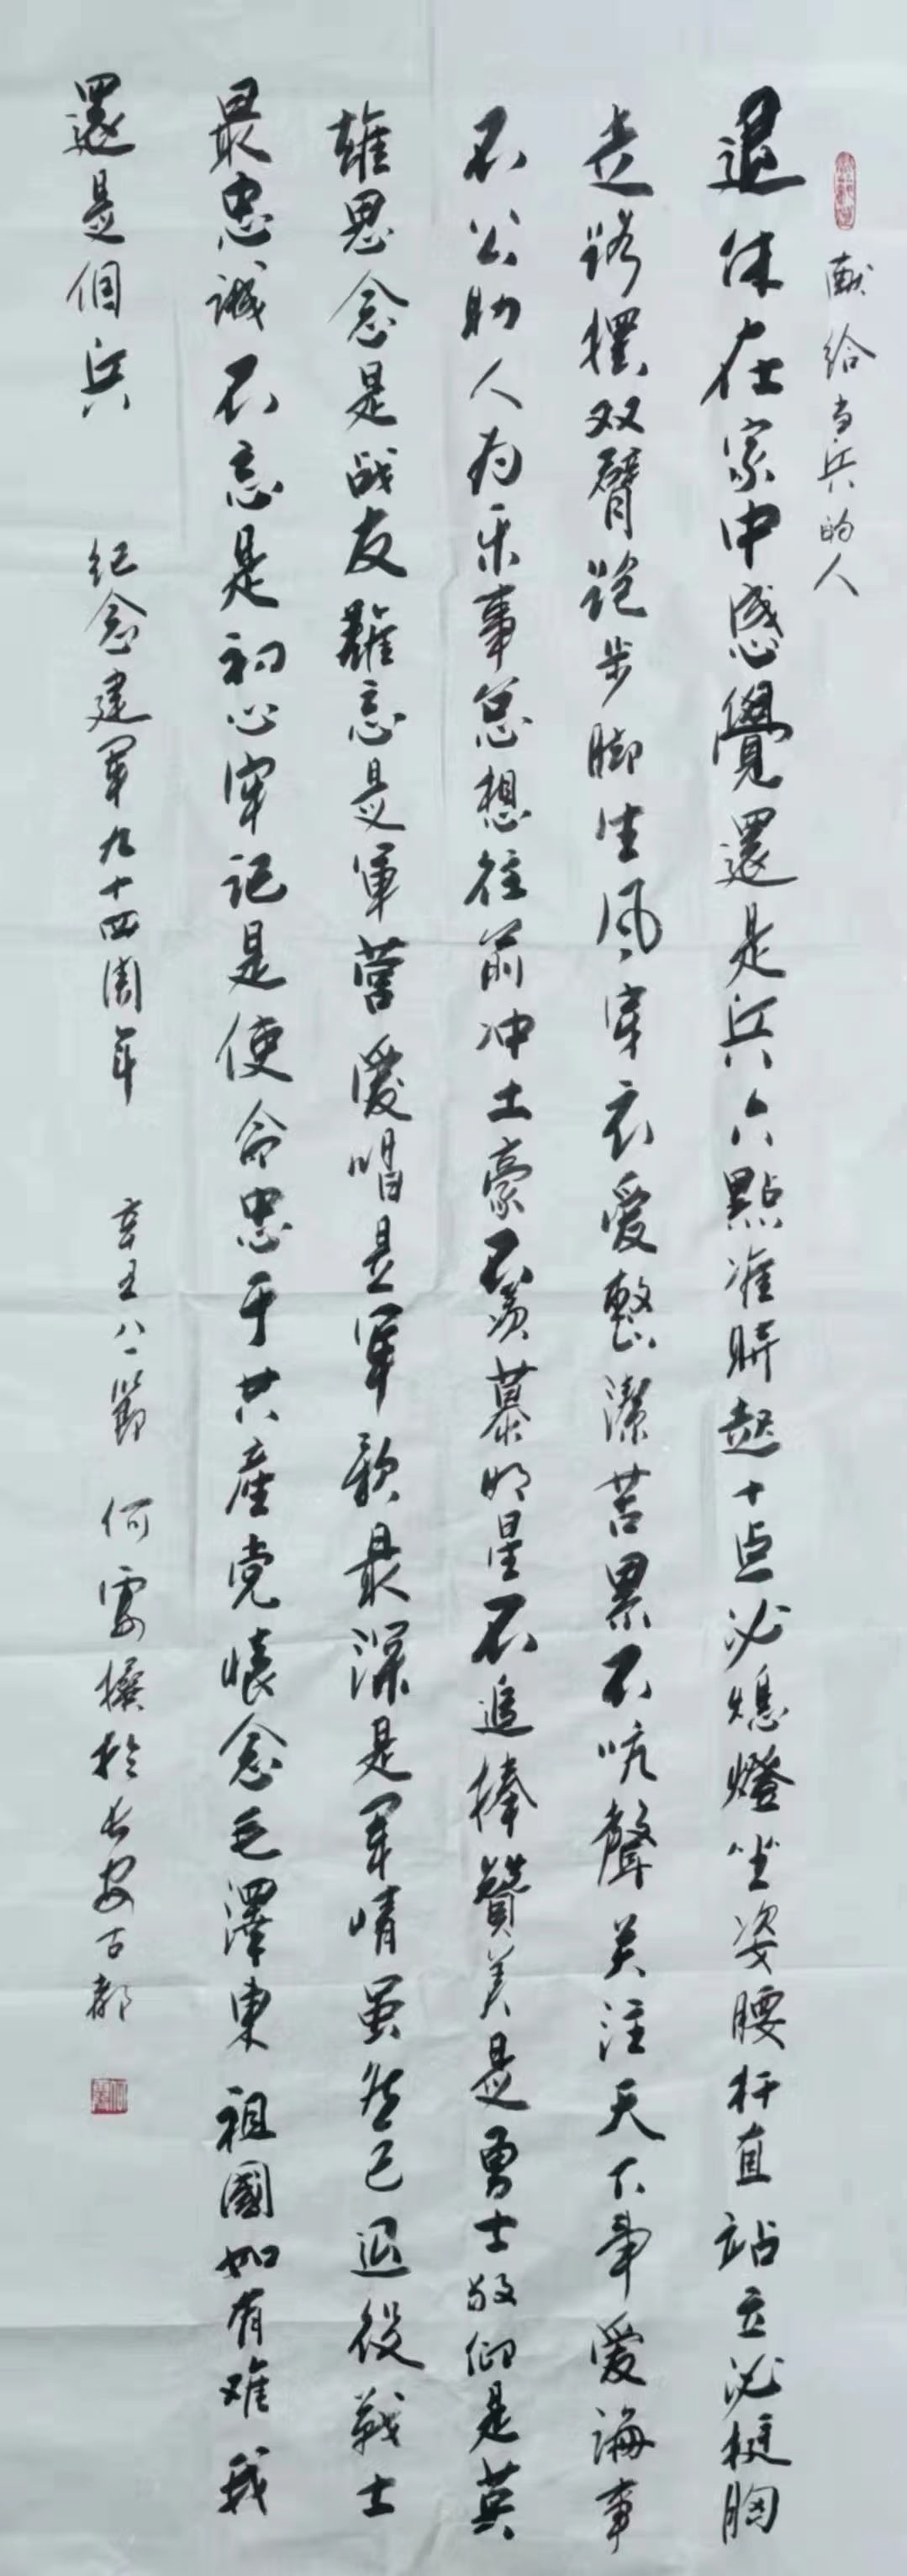 献给当兵的人
退休在家中感覺還是兵六點准時起十点必熄燈坐姿腰杆直站立必挺胸
走路摆双臂跑步脚生风穿衣爱整潔苦累不吭聲关注天下事爱論事
不公助人为乐事总想往前冲土豪不羡慕明星不追捧贊美是勇士敬仰是英
雄思念是战友難忘是軍營爱唱是軍歌最深是軍情虽然已退役戰士
最忠誠不忘是初心牢记是使命忠于共產党懐念毛澤東祖國如有难我
還是個兵
纪念建軍九十四周年
辛丑八一節 何 撰於长安古都